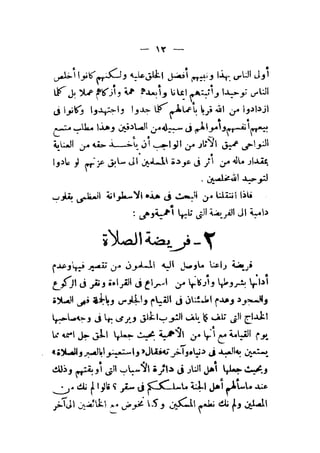 — ١٣ —
أولى الناس بهذا ونبيهم أفضل الخلق عليه ولكنهم كانوا أخلص
الناس توحيدا وأثبتهم إيمانا وأبعدهم همة وأزكاهم عملا بل كلما
ازدادوا من الله قربا بأعمالهم كلما جدوا واجتهدوا و كانوا في
بيعهم أنفسهم وأموالهم في سبيله من الصادقين وهذا مطلب متسع
النواحي عميق الآثار من الواجب أن يأخذ حقه من العناية
بمقدار ماله من أثر في عودة المسلمين الى سابق عزهم لو عادوا
لتوحيد الله مخلصين .
فاذا انتقلنا من البحث في هذه الاسطوانة العظمى بقلوب
دامية الى الفريضة التي تليها أهمية وهي :
٢ - فريضة الصلاة
فريضة راعنا ماوصل اليه المسلمون من تقصير فيها وعدم
أدائها بشروطها وأركانها من اسراع في القراءة ونقر في الركوع
والسجود وعدم اطمئنان في القيام والجلوس وبالجملة فهي الصلاة
الخداج التي تلف كما يلف الثوب الخلق ويرمى بها في وجه صاحبها
يوم القيامة مع أن لها من الأهمية بحيث جعلها الحق جل اسمه مما
يستعين به العبد في دنياه وآخرته فقال « واستعينوا بالصبر والصلاة »
وبحيث جعلها أهل النار في دائرة الأسباب التي أوبقتهم وذلك
عند ما سألهم أهل الجنة ما سلككم في سقر ؟ قالوا لم نك من
المصلين ولم نك نطعم المسكين وكنا نخوض مع الخائضين الى آخر